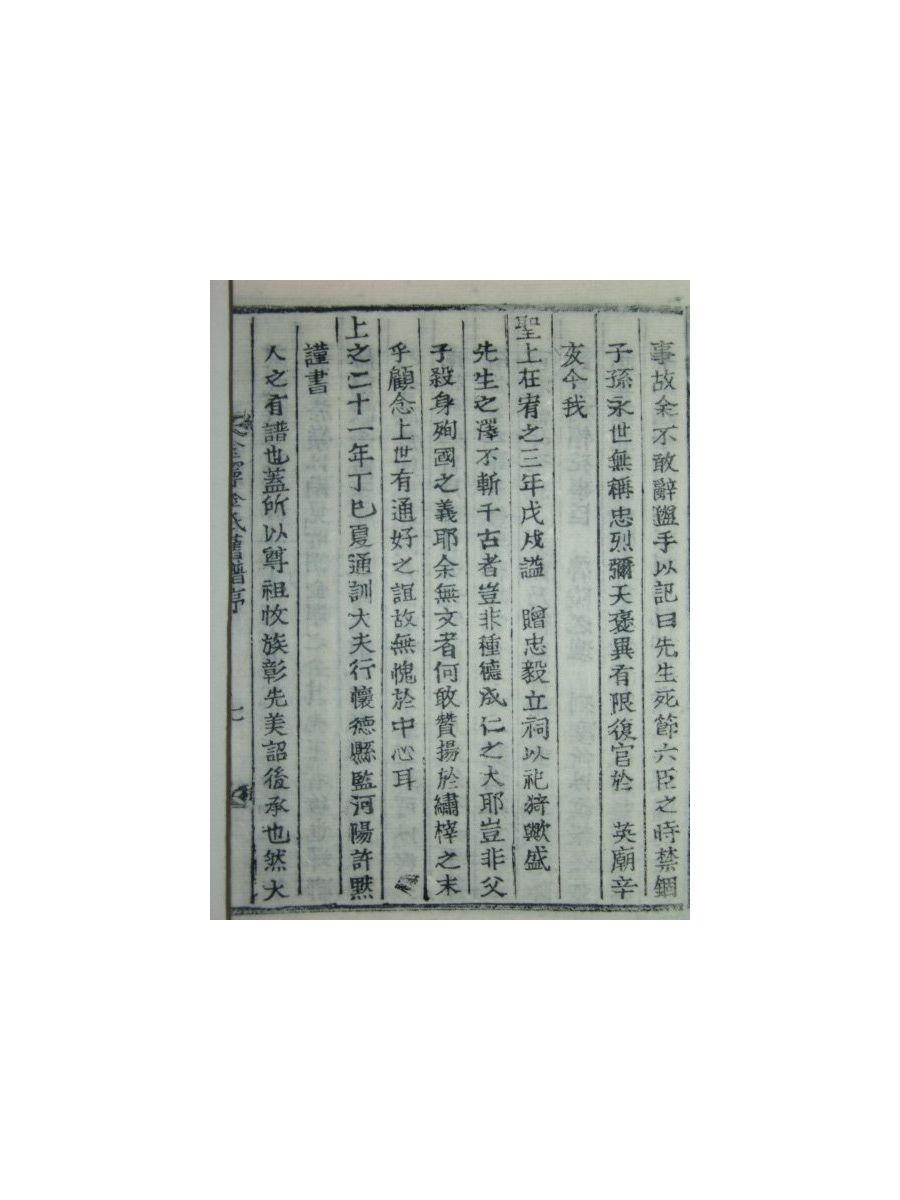 事故余不敢辭盥手以記曰先生死節六臣之時禁錮
子孫永世無稱忠烈彌天褒異有限復官於 英廟辛
亥今我
聖上在宥之三年戊戌謚 贈忠毅立祠以祀猗歟盛
先生之澤不斬千古者豈非種德成仁之大耶豈非父
子殺身殉國之義耶余無文者何敢贊揚於繡梓之末
乎顧念上世有通好之誼故無愧於中心耳
上之二十一年丁巳夏通訓大夫行懷德縣監河陽許㸃
謹書
人之有譜也蓋所以尊祖收族彰先美詔後承也然大
金寧金氏舊譜序